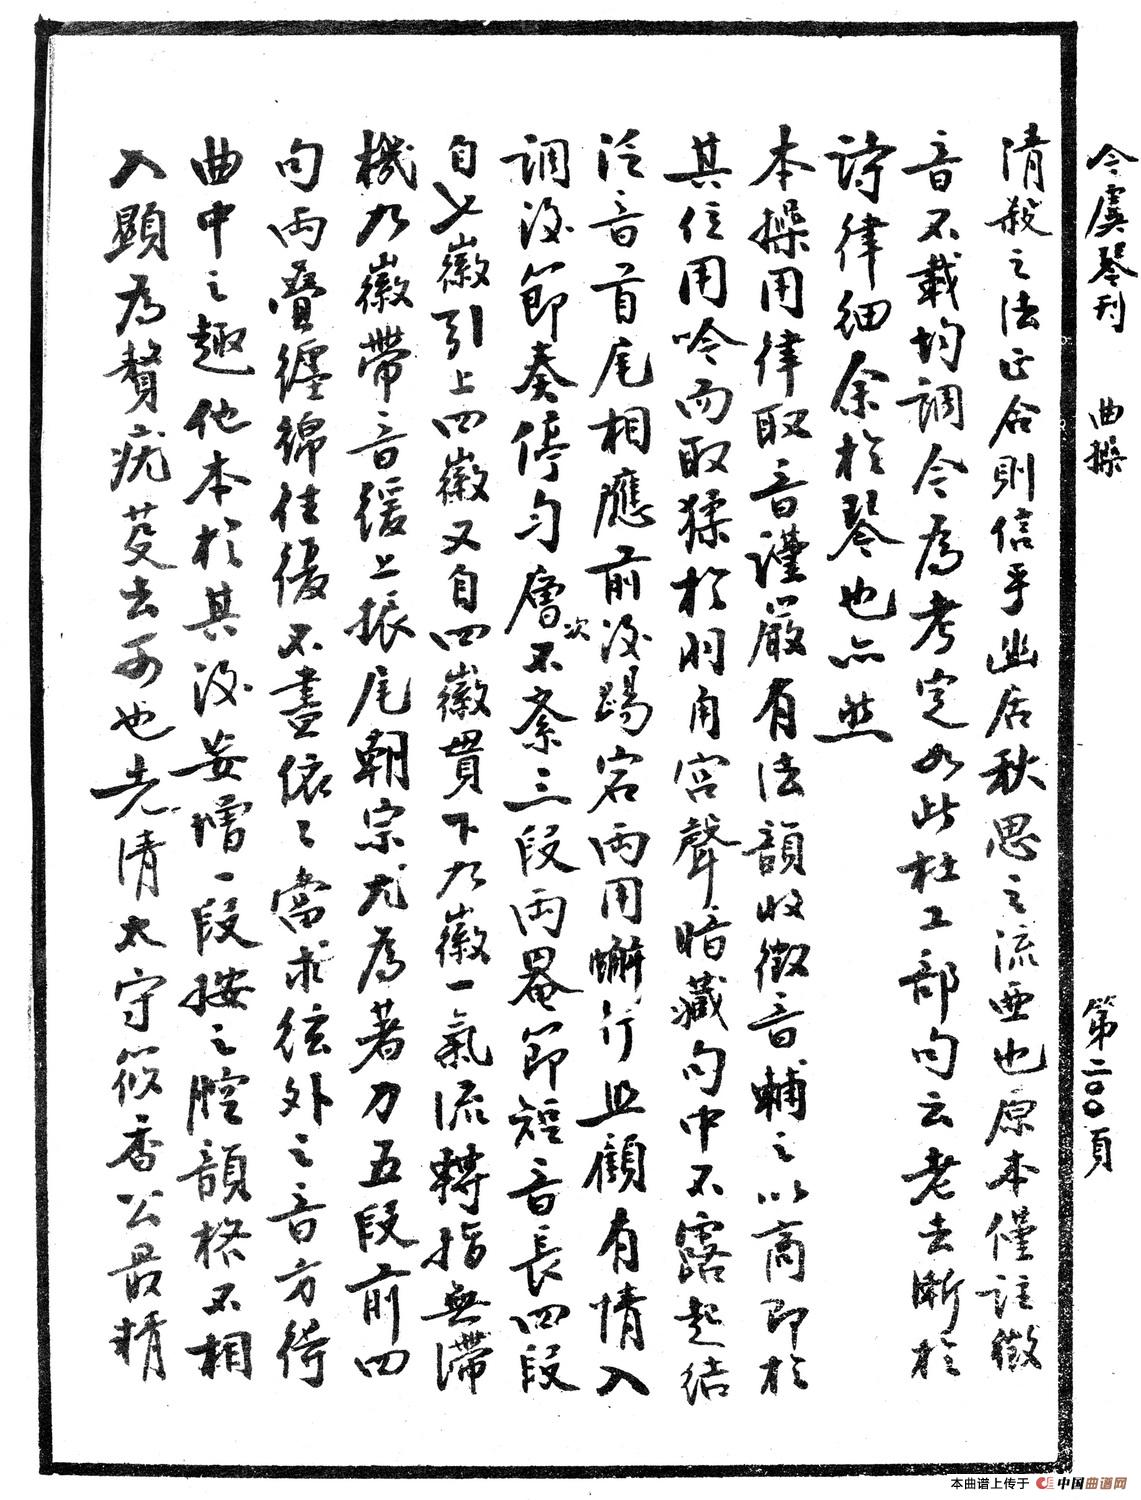 今虞琴刊　曲操　第二〇〇頁
清殺之法正合則信乎幽居秋思之流亞也原本僅註徵
音不載均調今為考定如此杜工部句云老去漸於
詩律細余於琴也亦然
本操用律取音謹嚴有法韻收徵音輔之以商即於
其位用吟而取猱於羽角宮聲暗藏句中不露起結
泛音首尾相應前後踢宕兩用蠏行且顧有情入
調後節奏停勻層次不紊三段兩罨節短音長四段
自七徽引上四徽又自四徽貫下九徽一氣流轉指無滯
機九徽帶音緩上振尾朝宗尤為著力五段前四
句兩疊纏綿往復不盡依々當求絃外之音方得
曲中之趣他本於其後妄增一段按之腔韻格不相
入顯為贅疣芟去可也先清太守筱香公最精
本曲谱上传于 中国曲谱网